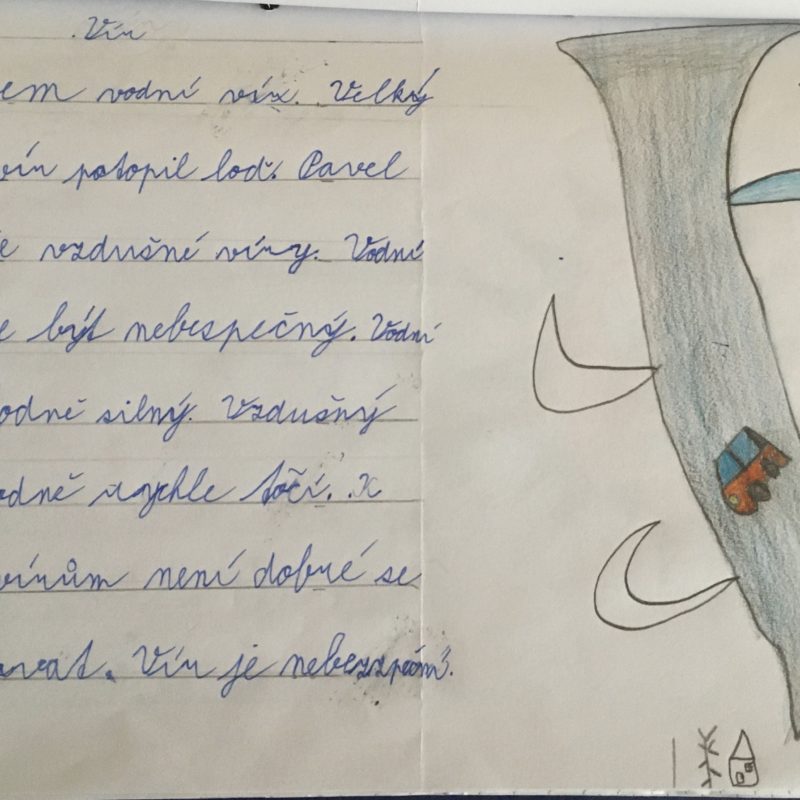 Vír
em vodní vír. Velký
vír potopil loď. Pavel
e vzdušné víry. Vodní
e být nebezpečný. Vodní
odně silný. Vzdušný
odně rychle točí. K
vírům není dobré se
ovat. Vír je